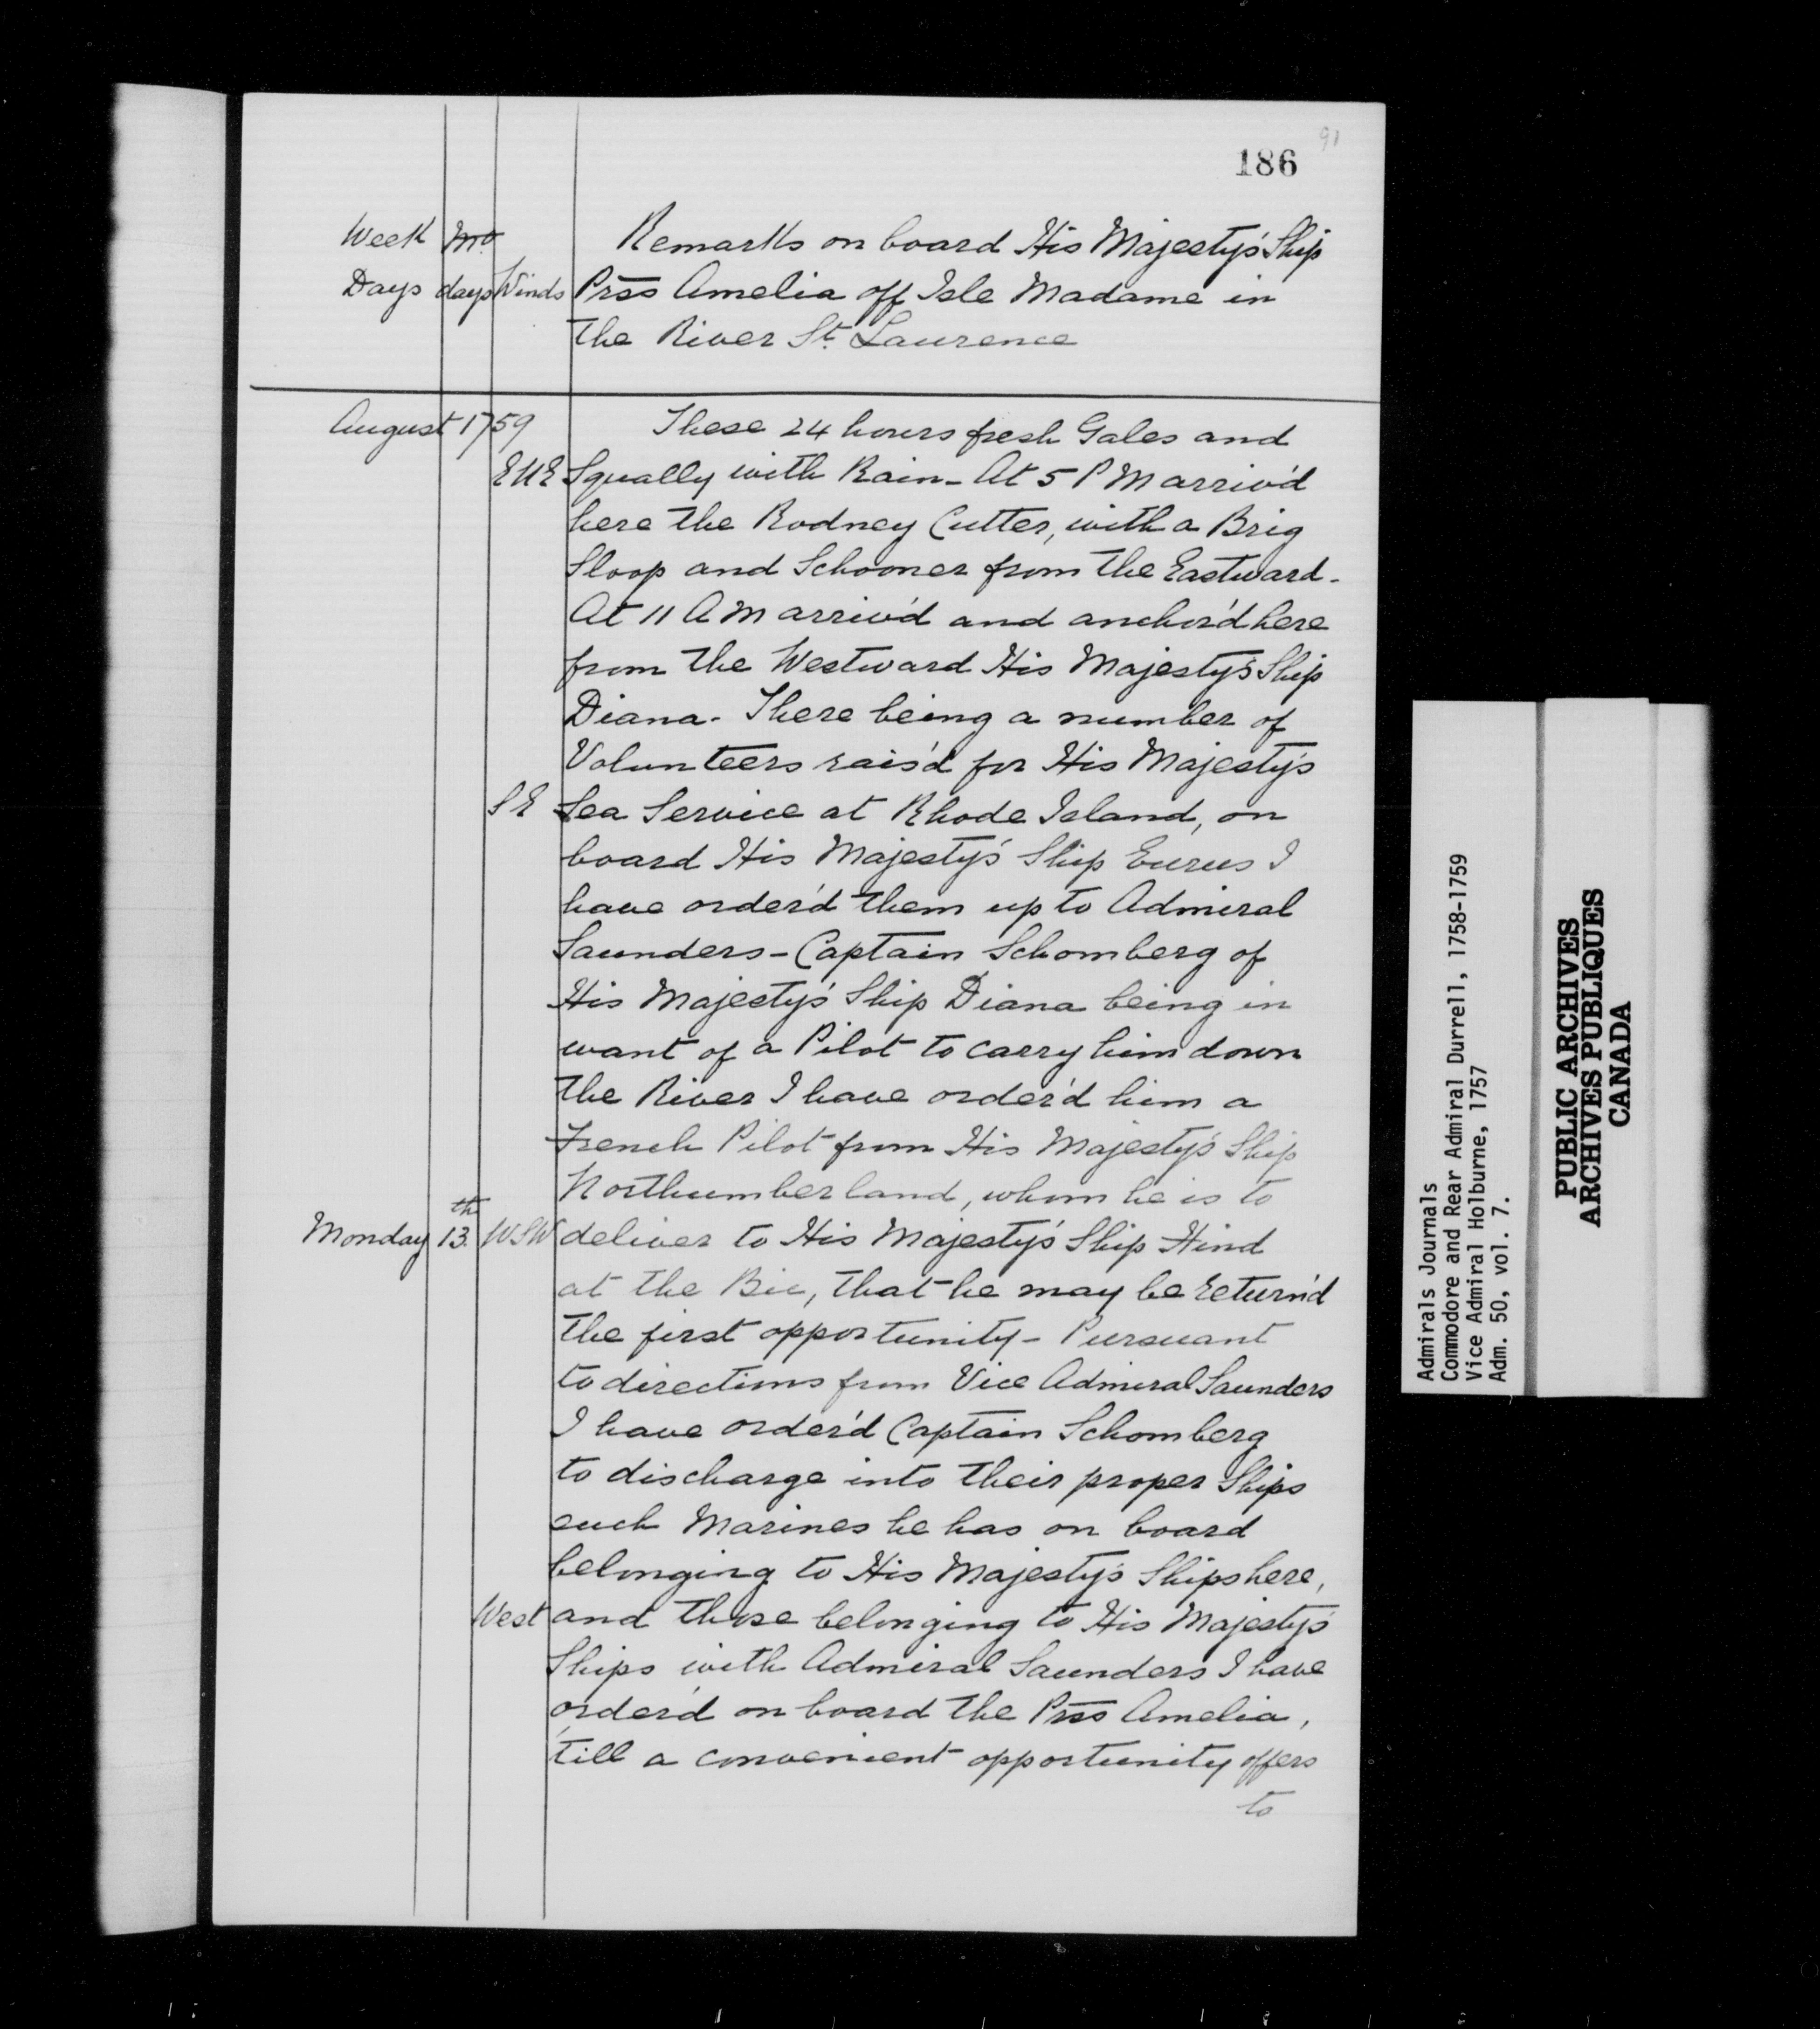 186
91
Week Mo. Remarks on board His Majesty's Ship
Days days Winds Prss Amelia off Isle Madame in
the River St. Laurence
August 1759 These 24 hours fresh Gales and
ENE Squally with Rain - At 5 PM arriv'd
here the Rodney Cutter, with a Brig
Sloop and Schooner from the Eastward -
At 11 AM arriv'd and anchor'd here
from the Westward His Majesty's Ship
Diana - There being a number of
Volunteers rais'd for His Majesty's
SE Sea Service at Rhode Island, on
board His Majesty's Ship Eurus I
have order'd them up to Admiral
Saunders - Captain Schomberg of
His Majesty's Ship Diana being in
want of a Pilot to carry him down
the River I have order'd him a
French Pilot from His Majesty's Ship
Northumberland, whom he is to
Monday 13th. WSW deliver to His Majesty's Ship Hind
at the Bic, that he may be return'd
the first opportunity - Pursuant
to directions from Vice Admiral Saunders
I have order'd Captain Schomberg
to discharge into their proper Ships
such Marines he has on board
belonging to His Majesty's Ships here,
West and those belonging to His Majesty's
Ships with Admiral Saunders I have
order'd on board the Prss Amelia,
till a convenient opportunity offers
to
Admirals Journals
Commodore and Rear Admiral Durrell, 1758-1759
Vice Admiral Holburne, 1757
Adm. 50, vol. 7.
PUBLIC ARCHIVES
ARCHIVES PUBLIQUES
CANADA